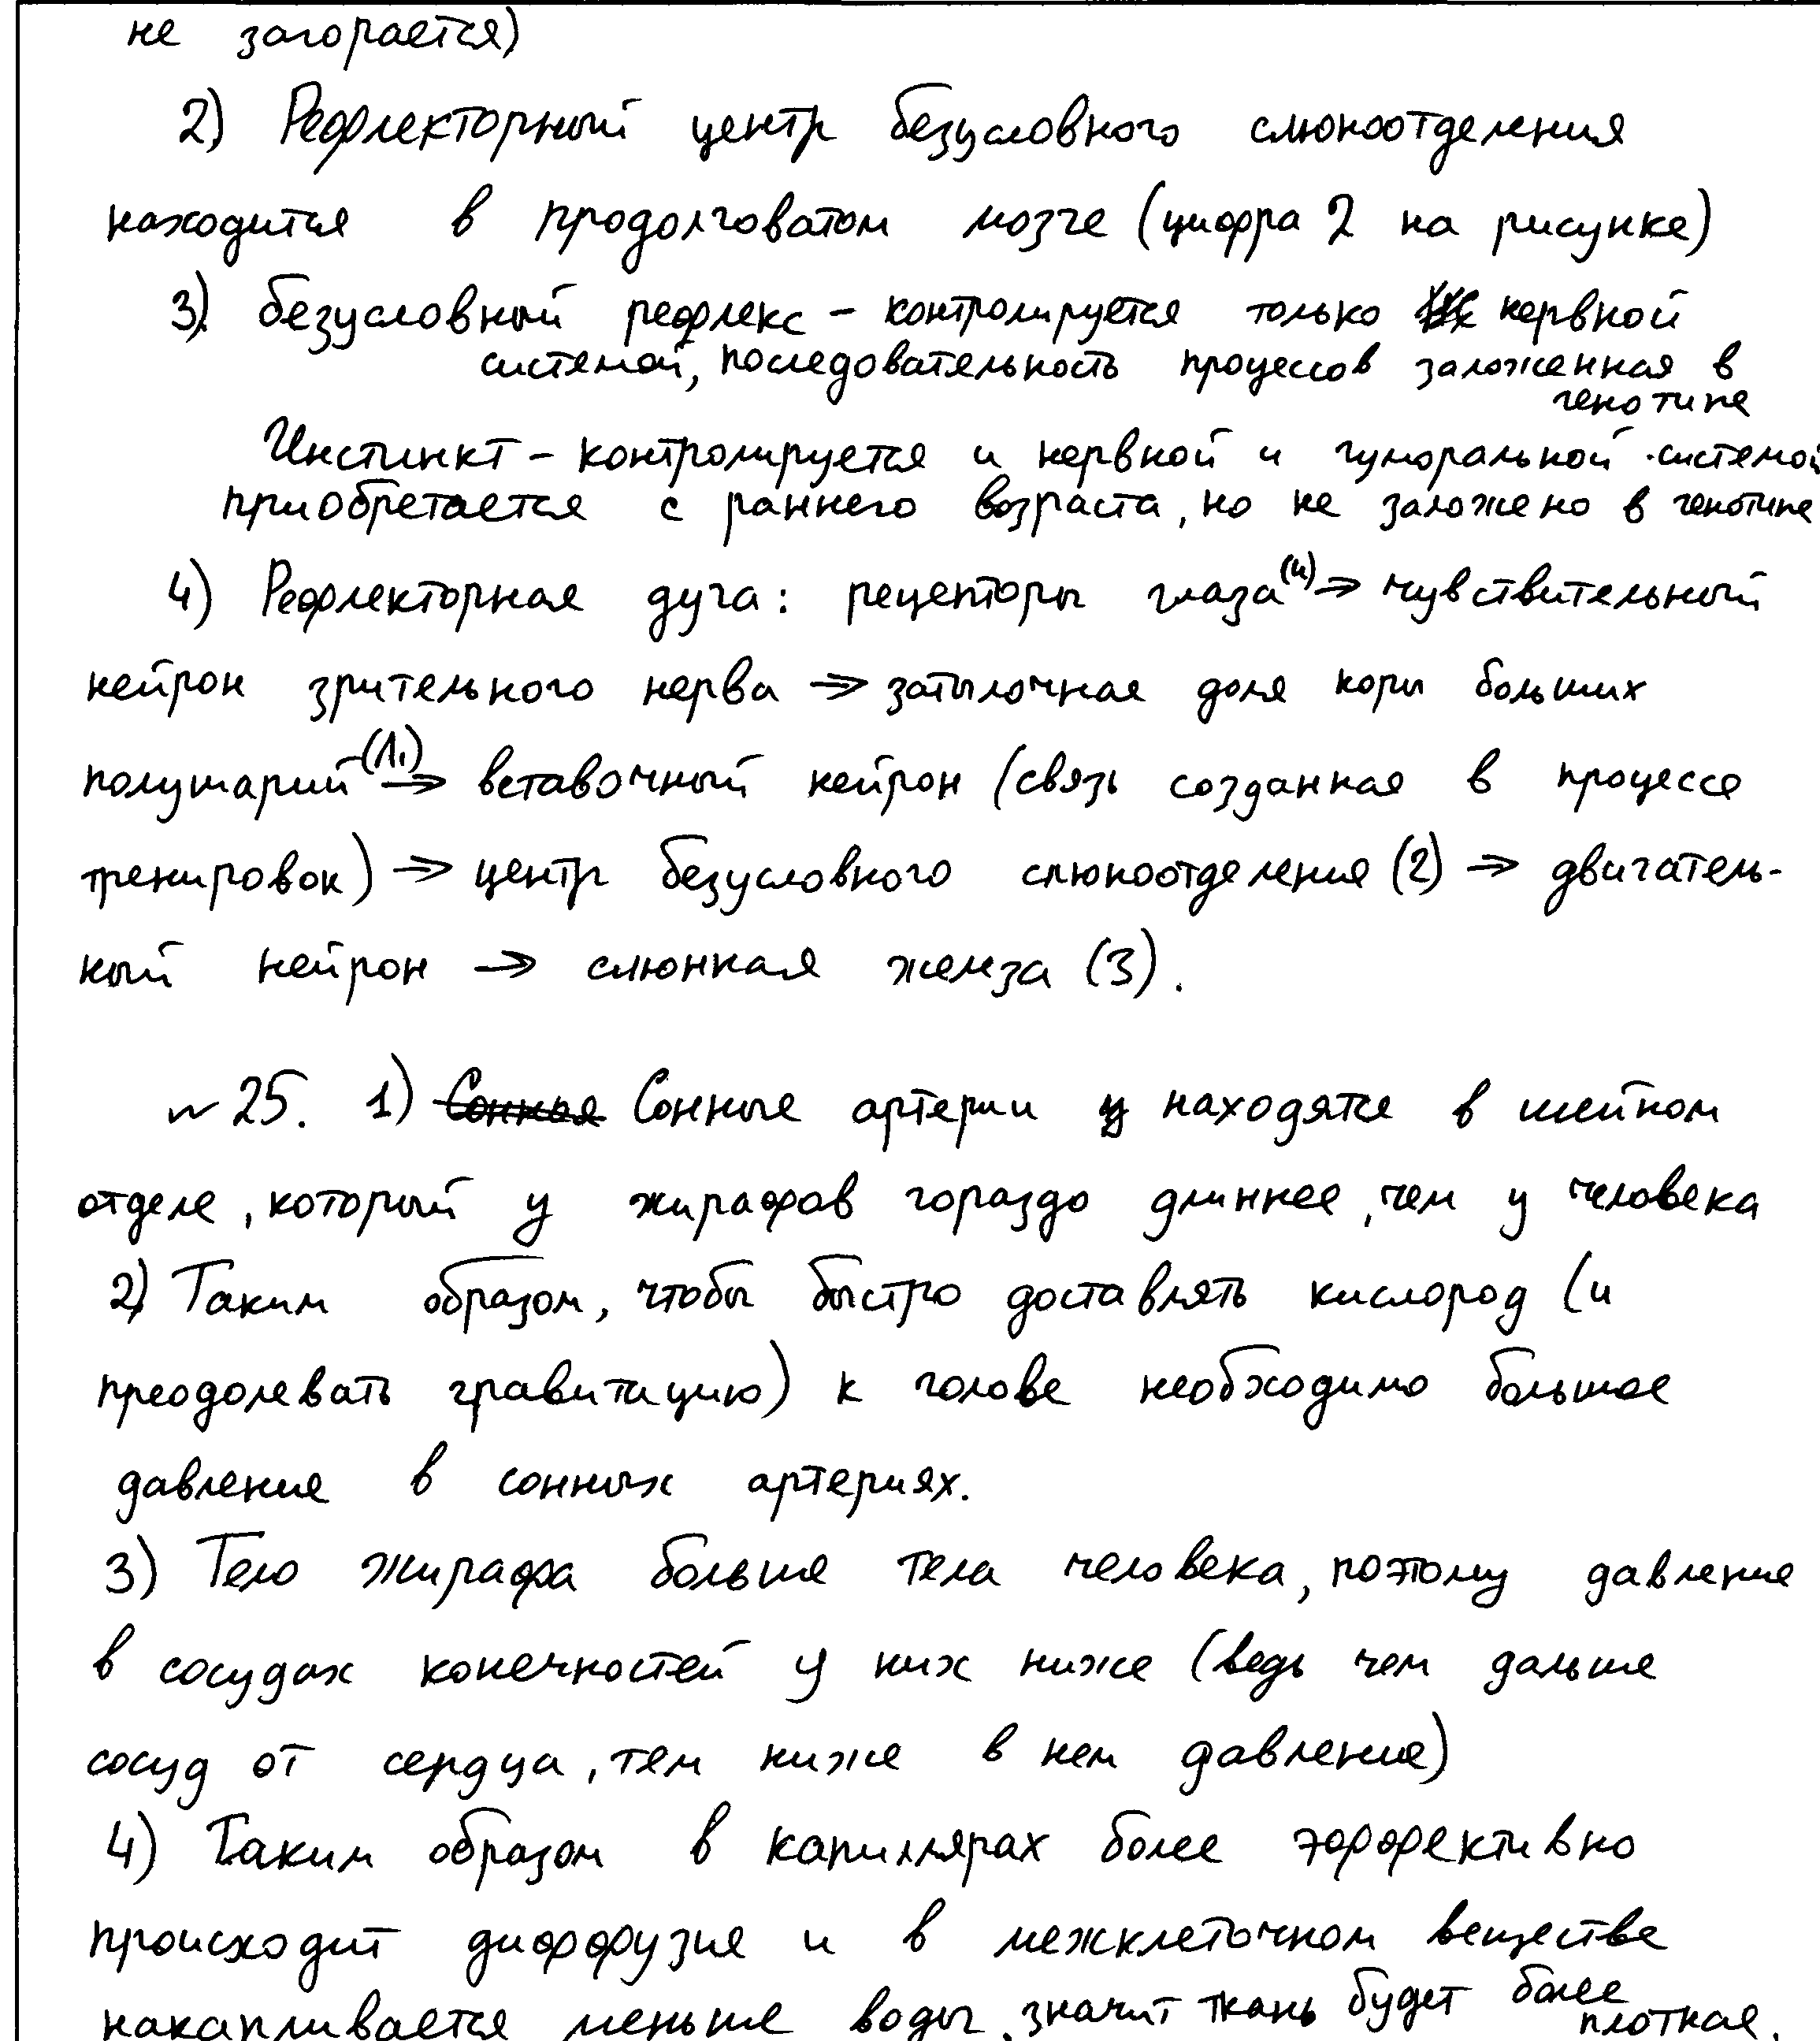 не загорается)
2) Рефлекторный центр безусловного слюноотделения
находится в продолговатом мозге (цифра 2 на рисунке)
3) безусловный рефлекс – контролируется только нервной
системой, последовательность процессов заложенная в
генотипе
Инстинкт – контролируется и нервной и гуморальной системой
приобретается с раннего возраста, но не заложено в генотипе
4) Рефлекторная дуга: рецепторы глаза (4) → чувствительный
нейрон зрительного нерва → затылочная доля коры больших
полушарий (1.) → вставочный нейрон (связь созданная в процессе
тренировок) → центр безусловного слюноотделения (2) → двигатель-
ный нейрон → слюнная железа (3).
~ 25. 1) Сонная Сонные артерии у находятся в шейном
отделе, который у жирафов гораздо длиннее, чем у человека
2) Таким образом, чтобы быстро доставлять кислород (и
преодолевать гравитацию) к голове необходимо большое
давление в сонных артериях.
3) Тело жирафа больше тела человека, поэтому давление
в сосудах конечностей у них ниже (ведь чем дальше
сосуд от сердца, тем ниже в нем давление)
4) Таким образом в капиллярах более эффективно
происходит диффузия и в межклеточном веществе
накапливается меньше воды, значит ткань будет более
плотная.